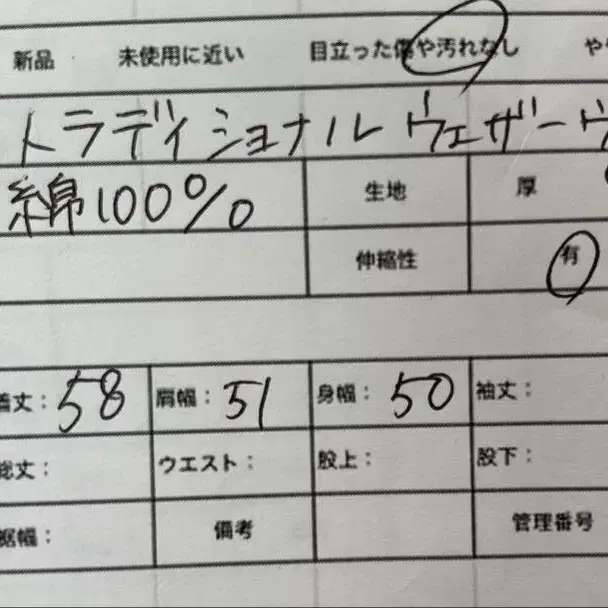 新品 未使用に近い 目立った傷や汚れなし や
トラディショナル ウェザーウ
綿100% 生地 厚
伸縮性 有
着丈: 58 肩幅: 51 身幅: 50 袖丈:
総丈: ウエスト: 股上: 股下:
裾幅: 備考 管理番号